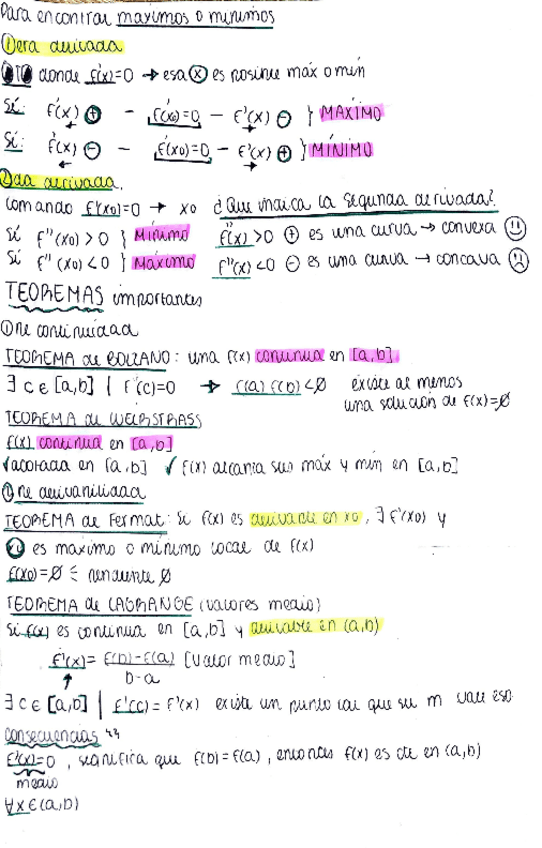 Para encontrar maximos o minimos
① era derivada
donde f'(x)=0 → esa ⓧ es posible máx o mín
Sí: f'(x) ⊕ - f'(x₀)=0 - f'(x) ⊖ } MÁXIMO
Sí: f'(x) ⊖ - f'(x₀)=0 - f'(x) ⊕ } MÍNIMO
② da derivada.
Comando f'(x₀)=0 → x₀ ¿Que indica la segunda derivada?
Sí f''(x₀) > 0 } Mínimo f''(x) > 0 ⊕ es una curva → convexa ☺
Sí f''(x₀) < 0 } Máximo f''(x) < 0 ⊖ es una curva → concava ☹
TEOREMAS importantes
① De continuidad
TEOREMA de BOLZANO: una f(x) continua en [a,b].
∃ c ∈ [a,b] | f'(c)=0 → f(a) f(b) < 0 existe al menos
una solución de f(x)=0
TEOREMA de WEIRSTRASS
f(x) continua en [a,b]
✓acotada en [a,b] ✓ f(x) alcanza sus máx y mín en [a,b]
② De derivabilidad
TEOREMA de Fermat: Si f(x) es derivable en x₀, ∃ f'(x₀) y
x₀ es maximo o mínimo local de f(x)
f(x₀)=0 = pendiente 0
TEOREMA de LAGRANGE (valores medio)
Si f(x) es continua en [a,b] y derivable en (a,b)
f'(x) = f(b)-f(a) [Valor medio]
b-a
∃ c ∈ [a,b] | f'(c) = f'(x) existe un punto tal que su m vale eso
Consecuencias
f'(x)=0, significa que f(b)=f(a), entonces f(x) es cte en (a,b)
medio
∀x∈(a,b)